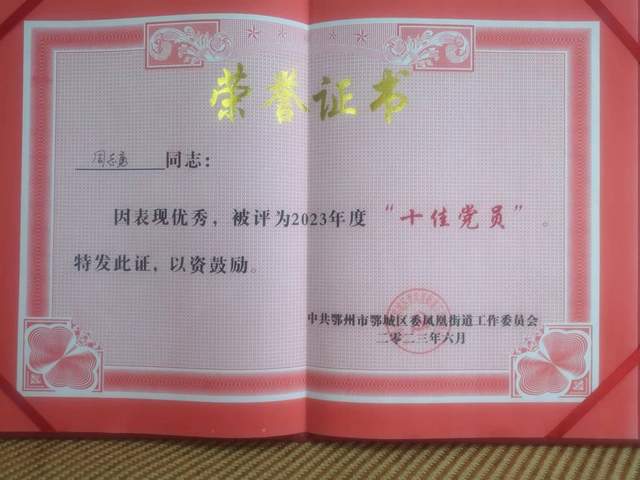 荣誉证书
同志：
因表现优秀，被评为2023年度“十佳党员”。
特发此证，以资鼓励。
中共鄂州市鄂城区委凤凰街道工作委员会
二零二三年六月